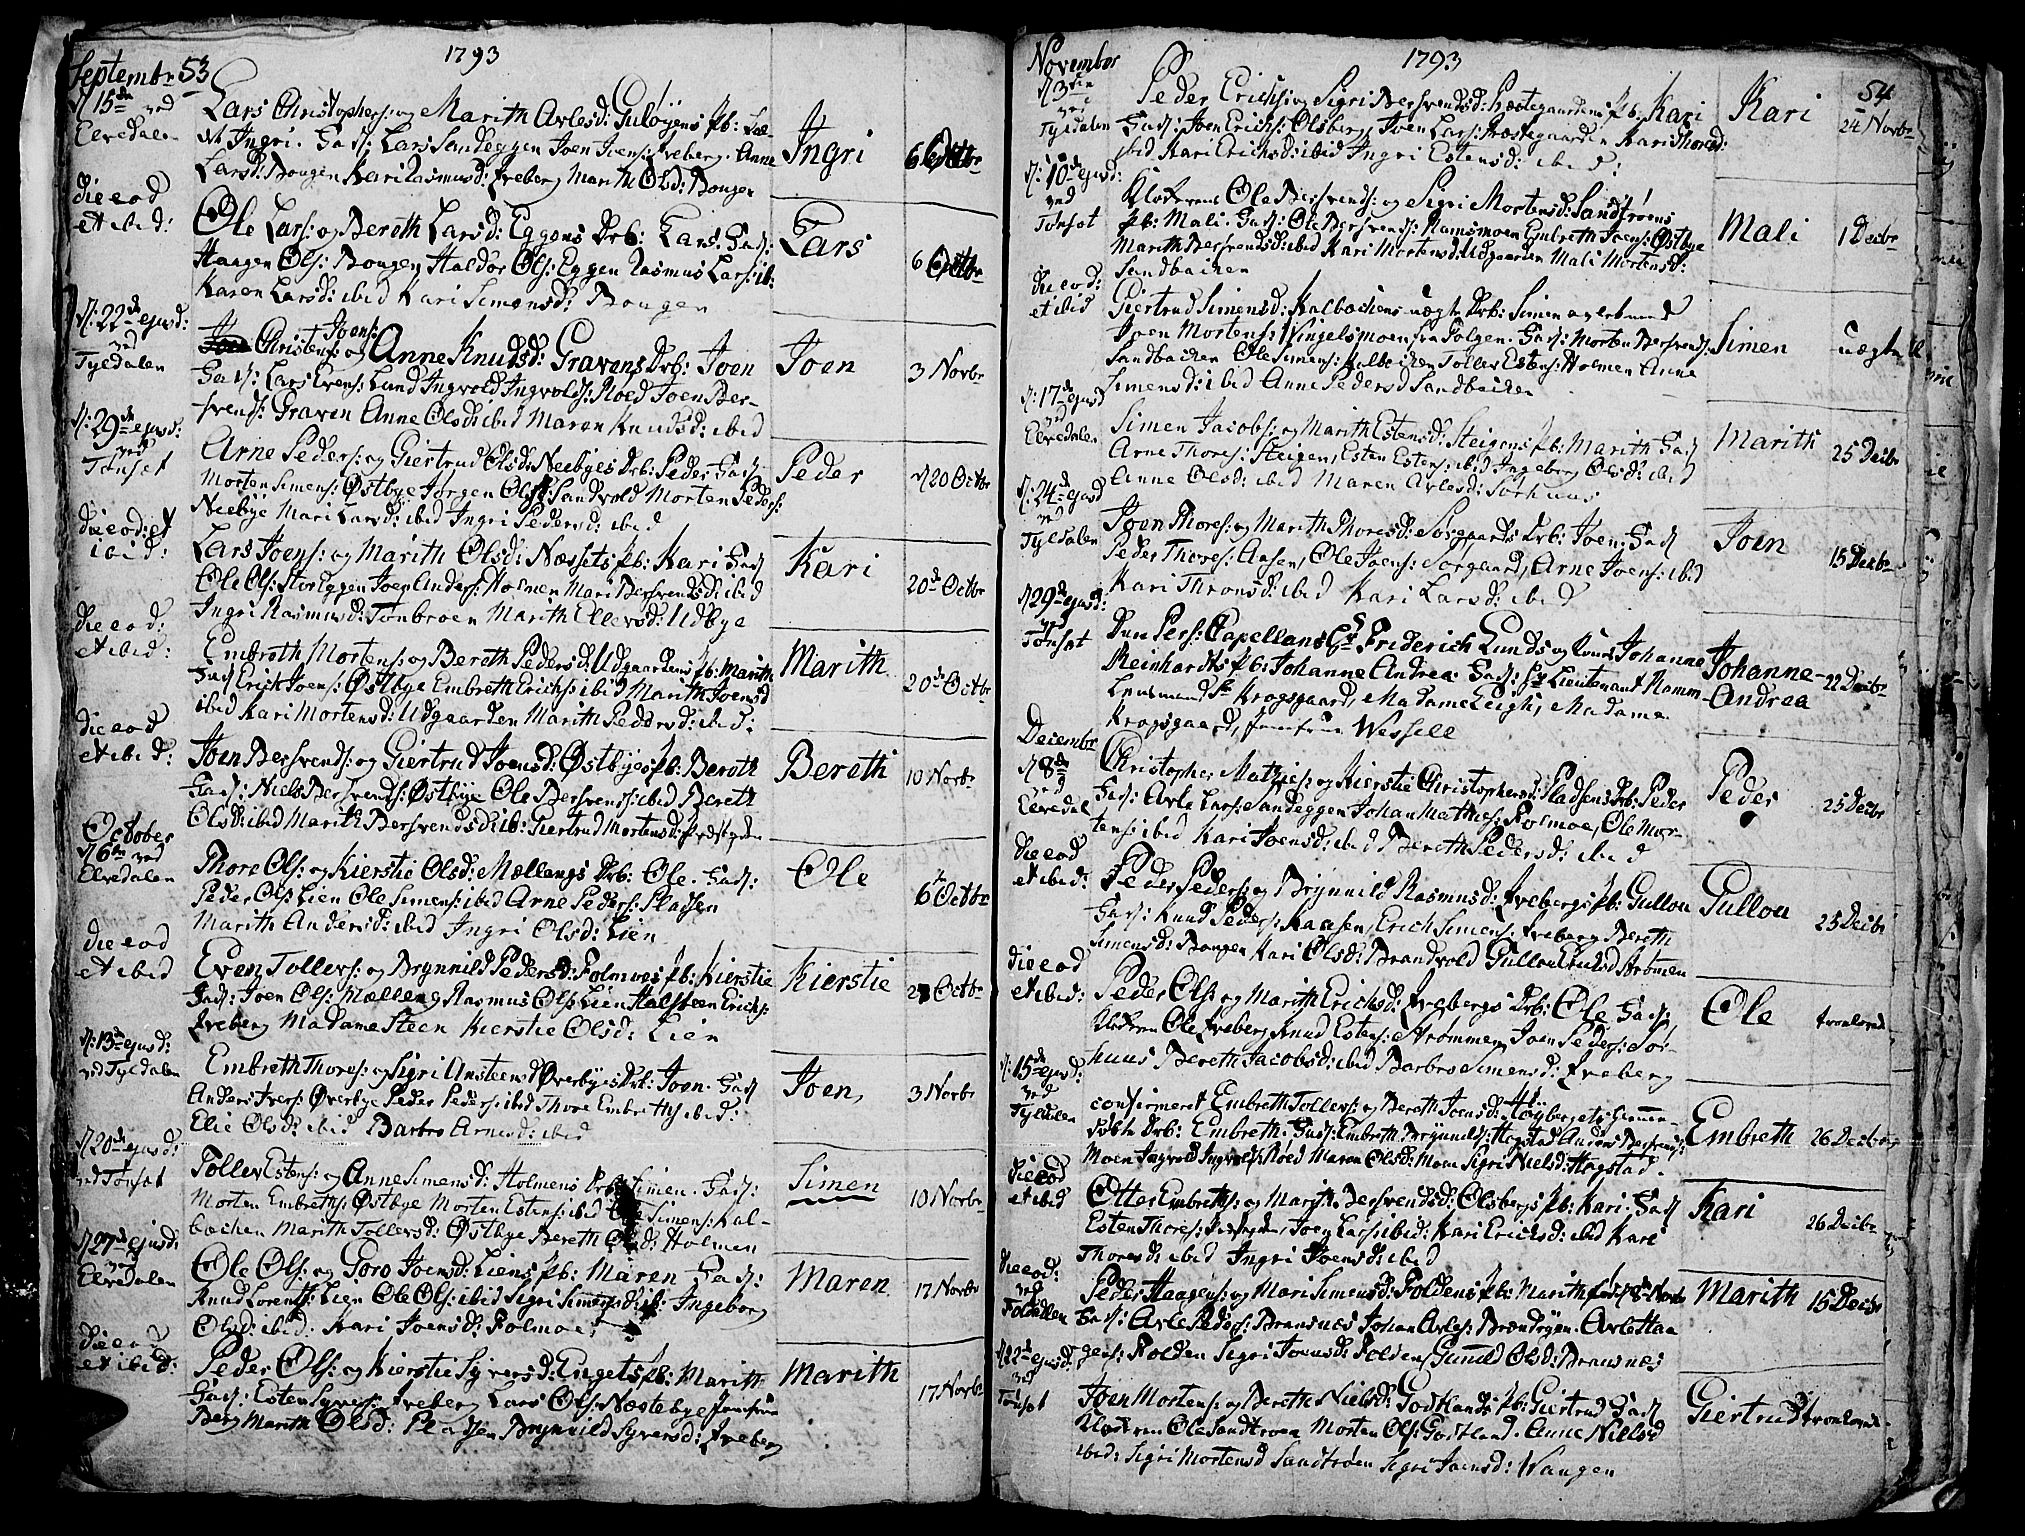 Septembr 53
1793
d 15de
ved
Elvedalen
Lars Christophers: og Marith Arlesd: Guløyens Pb: Sal-
vt Ingri. Fad: Lars Sandeggen Joen Joens: Iveberg. Anne
Larsd: Bougen Kari Rasmusd: Iveberg Marith Olsd: Bougen
Ingri
6 Octbr
die eod
et ibid:
Ole Lars: og Bereth Larsd: Eggens Drb: Lars. Fad:
Haagen Ols: Bougen Haldor Ols: Eggen Rasmus Lars: ib:
Karen Larsd: ibid Kari Simensd: Bougen
Lars
6 Octbr
d: 22de ejusd:
ved
Tyldalen
Christens Joens: og Anne Knudsd: Gravens Drb: Joen
Fad: Lars Evens: Lund Ingvold Ingvolds: Moed Joen Ber-
svends: Graven Anne Olsd: ibid Maren Knudsd: ibid
Joen
3 Novbr
d: 29de ejusd:
ved
Tønset
Arne Peders: og Giertrud Olsd: Neebyes Drb: Peder Fad:
Morten Simens: Østbye Jørgen Ols: Sandvold Morten Peders:
Neebye Mari Larsd: ibid Ingri Pedersd: ibid
Peder
d 20 Octbr
die eod: et
ibid:
Lars Joens: og Marith Olsd: Næssets Pb: Kari Fad:
Ole Ols: Storeggen Joen Anders: Holmen Mari Bersvendsd: ibid
Ingri Rasmusd: Tønbroen Marith Ellevsd: Udbye
Kari
20de Octbr
die eod:
et ibid:
Embreth Mortens: og Bereth Pedersd: Udgaardens Pb: Marith
Fad Erick Joens: Østbye Embreth Erichs: ibid Marith Joensd
ibid Kari Mortensd: Udgaarden Marith Pedersd: ibid:
Marith
20de Octbr
die eod
et ibid:
Joen Bersvends: og Giertrud Joensd: Østbyes Pb: Bereth
Fad: Niels Bersvends: Østbye Ole Bersvens: ibid Bereth
Olsd: ibid Marith Bersvendsd: ib: Giertrud Mortensd: Præstgrden
Bereth
10 Novbr
October
d 6te ved
Elvedalen
Thore Ols: og Kierstie Olsd: Mællengs Drb: Ole. Fad:
Peder Ols: Lien Ole Simens: ibid Arne Peders: Pladsen
Marith Andersd: ibid Ingri Olsd: Lien
Ole
6te Octbr
die eod
et ibid
Even Tollevs: og Brynnild Pedersd: Folmoes Pb: Kierstie
Fad: Joen Ols: Mælleng Rasmus Ols: Lien Halsteen Erichs:
Iveberg Madame Steen Kierstie Olsd: Lien
Kierstie
27 Octbr
d: 13de ejusd:
ved Tyldalen
Embreth Thores: og Sigri Ansteensd Øverbyes Drb: Joen. Fad:
Anders Ivers: Øverbye Peder Peders: ibid Thore Embreths: ibid:
Elie Olsd: ibid Barbro Arnesd: ibid
Joen,
3 Novbr
d 20de ejusd:
ved Tønset
Tollev Estens: og Anne Simensd: Holmens Drb: Simen. Fad:
Morten Embreths: Østbye Morten Estens: ibid Ole Simens: Kal-
bachen Marith Tollevsd: Østbye Bereth Olsd: Holmen
Simen
10 Novbr
d 27de ejusd:
ved
Elvedalen
Ole Ols: og Goro Joensd: Liens Pb: Maren Fad:
Knud Lorents: Lien Ole Ols: ibid Sigri Simensd: ib: Ingeborg
Olsd: ibid. Kari Joensd: Rolmoe:
Maren
17 Novbr
die eod
et ibid:
Peder Ols: og Kierstie Syversd: Engets Pb: Marith
Fad: Esten Syvers: Iveberg Lars Ols: Næstebye Jomfrue
Berg Marith Olsd: Pladsen Brynnild Syversd: Iveberg
Marith
17 Novbr
November
1793
54
d 3die
ved
Tyldalen
Peder Erichs: og Sigri Bersvendsd: Præstegaardens Pb: Kari
Fad: Joen Erichs: Olsberg Joen Lars: Præstegaarden Kari Thoresd:
ibid Kari Erichsd: ibid Ingri Estensd: ibid:
Kari
24 Novbr
d: 10de ejusd:
ved
Tønset
Klokkeren Ole Bersvends: og Sigri Mortensd: Sandtrøens
Pb: Mali. Fad: Ole Bersvends: Ramsmoen Embreth Joens: Østbye
Marith Bersvendsd: ibid Kari Mortensd: Udgaarden Mali Mortensd:
Sandbachen
Mali
1 Decbr
die eod:
et ibid
Giertrud Simensd: Kalbachens uægte Drb: Simen
Joen Mortens: Vingelsmoen fra Tolgen. Fad: Morten Bersvends:
Sandbachen Ole Simens: Kalbachen Tollev Estens: Holmen Anne
Simensd: ibid Anne Pedersd Sandbachen
Simen
uægte
d: 17de ejusd
ved
Elvedalen
Simen Jacobs: og Marith Estensd: Steigens Pb: Marith Fad:
Arne Thores: Steigen, Esten Estens: ibid Ingeborg Olsd: ibid
Anne Olsd: ibid Maren Arlesd: Sørhuus
Marith
25 Decbr
d: 24de ejusd
ved
Tyldalen
Joen Thores: og Marith Thoresd: Søegaards Drb: Joen: Fad:
Peder Thores: Aasen, Ole Joens: Sorgaard, Arne Joens: ibid
Kari Thronsd: ibid Kari Larsd: ibid
Joen
15 Decbr
d 29de ejusd:
ved
Tønset
Den Pers: Capellans Hr Friderich Lunds og Kones Johanne
Reinhardts Pb: Johanne Andrea: Fad: Hr Lieutenant Ramm
Lensmand Sr Krogsgaard, Madame Leigh, Madame
Krogsgaard, Jomfrue Wessell
Johanne-
Andrea
22 Decbr
December
d 8de
ved
Elvedal
Christopher Mathies: og Kierstie Christophersd: Pladsens Drb: Peder
Fad: Arle Lars: Sandeggen Johan Mathies: Rolmoe, Ole Mor-
tens: ibid Kari Joensd: ibid Bereth Pedersd: ibid
Peder
25 Decbr
die eod
et ibid:
Peder Peders: og Brynnild Rasmusd: Ivebergs Pb: Gullou
Fad: Knud Peders: Kaasen, Erich Simens: Iveberg Bereth
Simensd: Bougen Kari Olsd: Brandvold Gullou Eriksd Strømmen
Gullou
25 Decbr
die eod
et ibid:
Peder Ols: og Marith Erichsd: Ivebergs Drb: Ole Fad:
Klokren Ole Iveberg Knud Estens: Strømmen Joen Peders: Sør-
huus Bereth Jacobsd: ibid Barbro Simensd: Iveberg
Ole
d: 15de ejusd:
ved
Tyldalen
confirmeret Embreth Tollevs: og Bereth Joensd: Høybergets Hiemme-
døbte Drb: Embreth. Fad: Embreth Brynnilds: Hogstad Anders Bersvends:
Moen Ingvold Ingvolds: Moed Maren Olsd: Moen Sigri Nielsd: Hogstad.
Embreth
26 Decbr
die eod
et ibid
Otter Embreths: og Marith Bersvendsd: Olsbergs Pb: Kari. Fad:
Esten Thores: Joen Lars: ibid: Kari Ericksd: ibid Kari
Thoresd: ibid Ingri Joensd: ibid
Kari
26 Decbr
die eod:
ved
Foldalen
Peder Haagens: og Mari Simensd: Foldens Pb: Marith
Fad: Arle Peders: Bransnæs Johan Arles: Brændryen. Arle Haa
gens: Folden Sigri Joensd: Folden Gunild Olsd: Bransnæs
Marith
15 Decbr
d 22de ejusd:
ved
Tønset
Joen Mortens: og Bereth Nielsd: Godtlands Pb: Giertrud Fad:
Klokren Ole Sandtroen Morten Ols: Godtland. Anne Nielsd
ibid: Sigri Mortensd Sandtrøen Sigri Joensd: Wangen
Giertrud